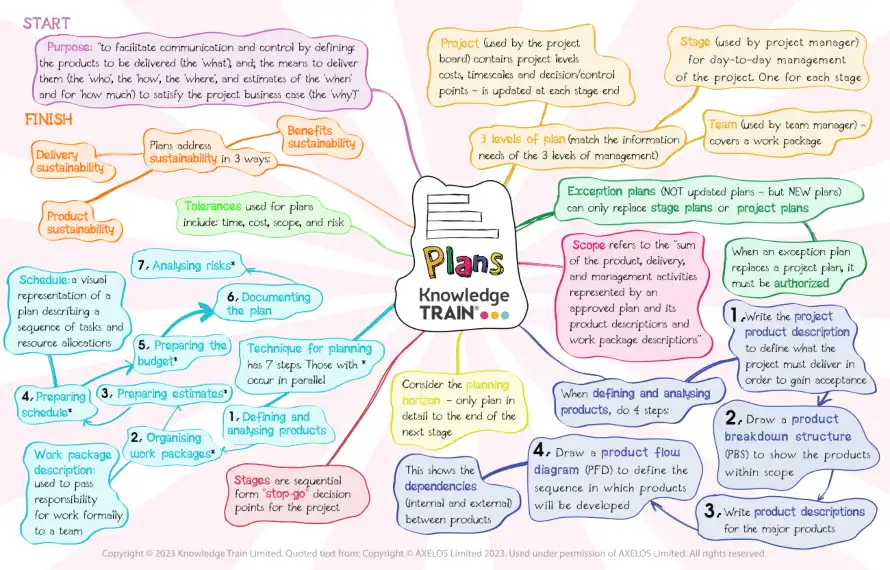 START
Purpose: "to facilitate communication and control by defining:
the products to be delivered (the 'what'), and; the means to deliver
them (the 'who', the 'how', the 'where', and estimates of the 'when'
and for 'how much') to satisfy the project business case (the 'why')"
FINISH
Plans address
sustainability in 3 ways:
Benefits
sustainability
Delivery
sustainability
Product
sustainability
Tolerances used for plans
include: time, cost, scope, and risk
Project (used by the project
board) contains project levels
costs, timescales and decision/control
points - is updated at each stage end
Stage (used by project manager)
for day-to-day management
of the project. One for each stage
3 levels of plan (match the information
needs of the 3 levels of management)
Team (used by team manager) -
covers a work package
Exception plans (NOT updated plans - but NEW plans)
can only replace stage plans or project plans
When an exception plan
replaces a project plan, it
must be authorized
Plans
Knowledge
TRAIN®
Scope refers to the "sum
of the product, delivery,
and management activities
represented by an
approved plan and its
product descriptions and
work package descriptions"
Schedule: a visual
representation of a
plan describing a
sequence of tasks and
resource allocations
7. Analysing risks*
6. Documenting
the plan
5. Preparing the
budget*
Technique for planning
has 7 steps. Those with *
occur in parallel
4. Preparing
schedule*
3. Preparing estimates*
1. Defining and
analysing products
2. Organising
work packages*
Work package
description:
used to pass
responsibility
for work formally
to a team
Stages are sequential
form "stop-go" decision
points for the project
Consider the planning
horizon - only plan in
detail to the end of the
next stage
When defining and analysing
products, do 4 steps:
1. Write the project
product description
to define what the
project must deliver in
order to gain acceptance
2. Draw a product
breakdown structure
(PBS) to show the products
within scope
3. Write product descriptions
for the major products
4. Draw a product flow
diagram (PFD) to define the
sequence in which products
will be developed
This shows the
dependencies
(internal and external)
between products
Copyright © 2023 Knowledge Train Limited. Quoted text from: Copyright © AXELOS Limited 2023. Used under permission of AXELOS Limited. All rights reserved.